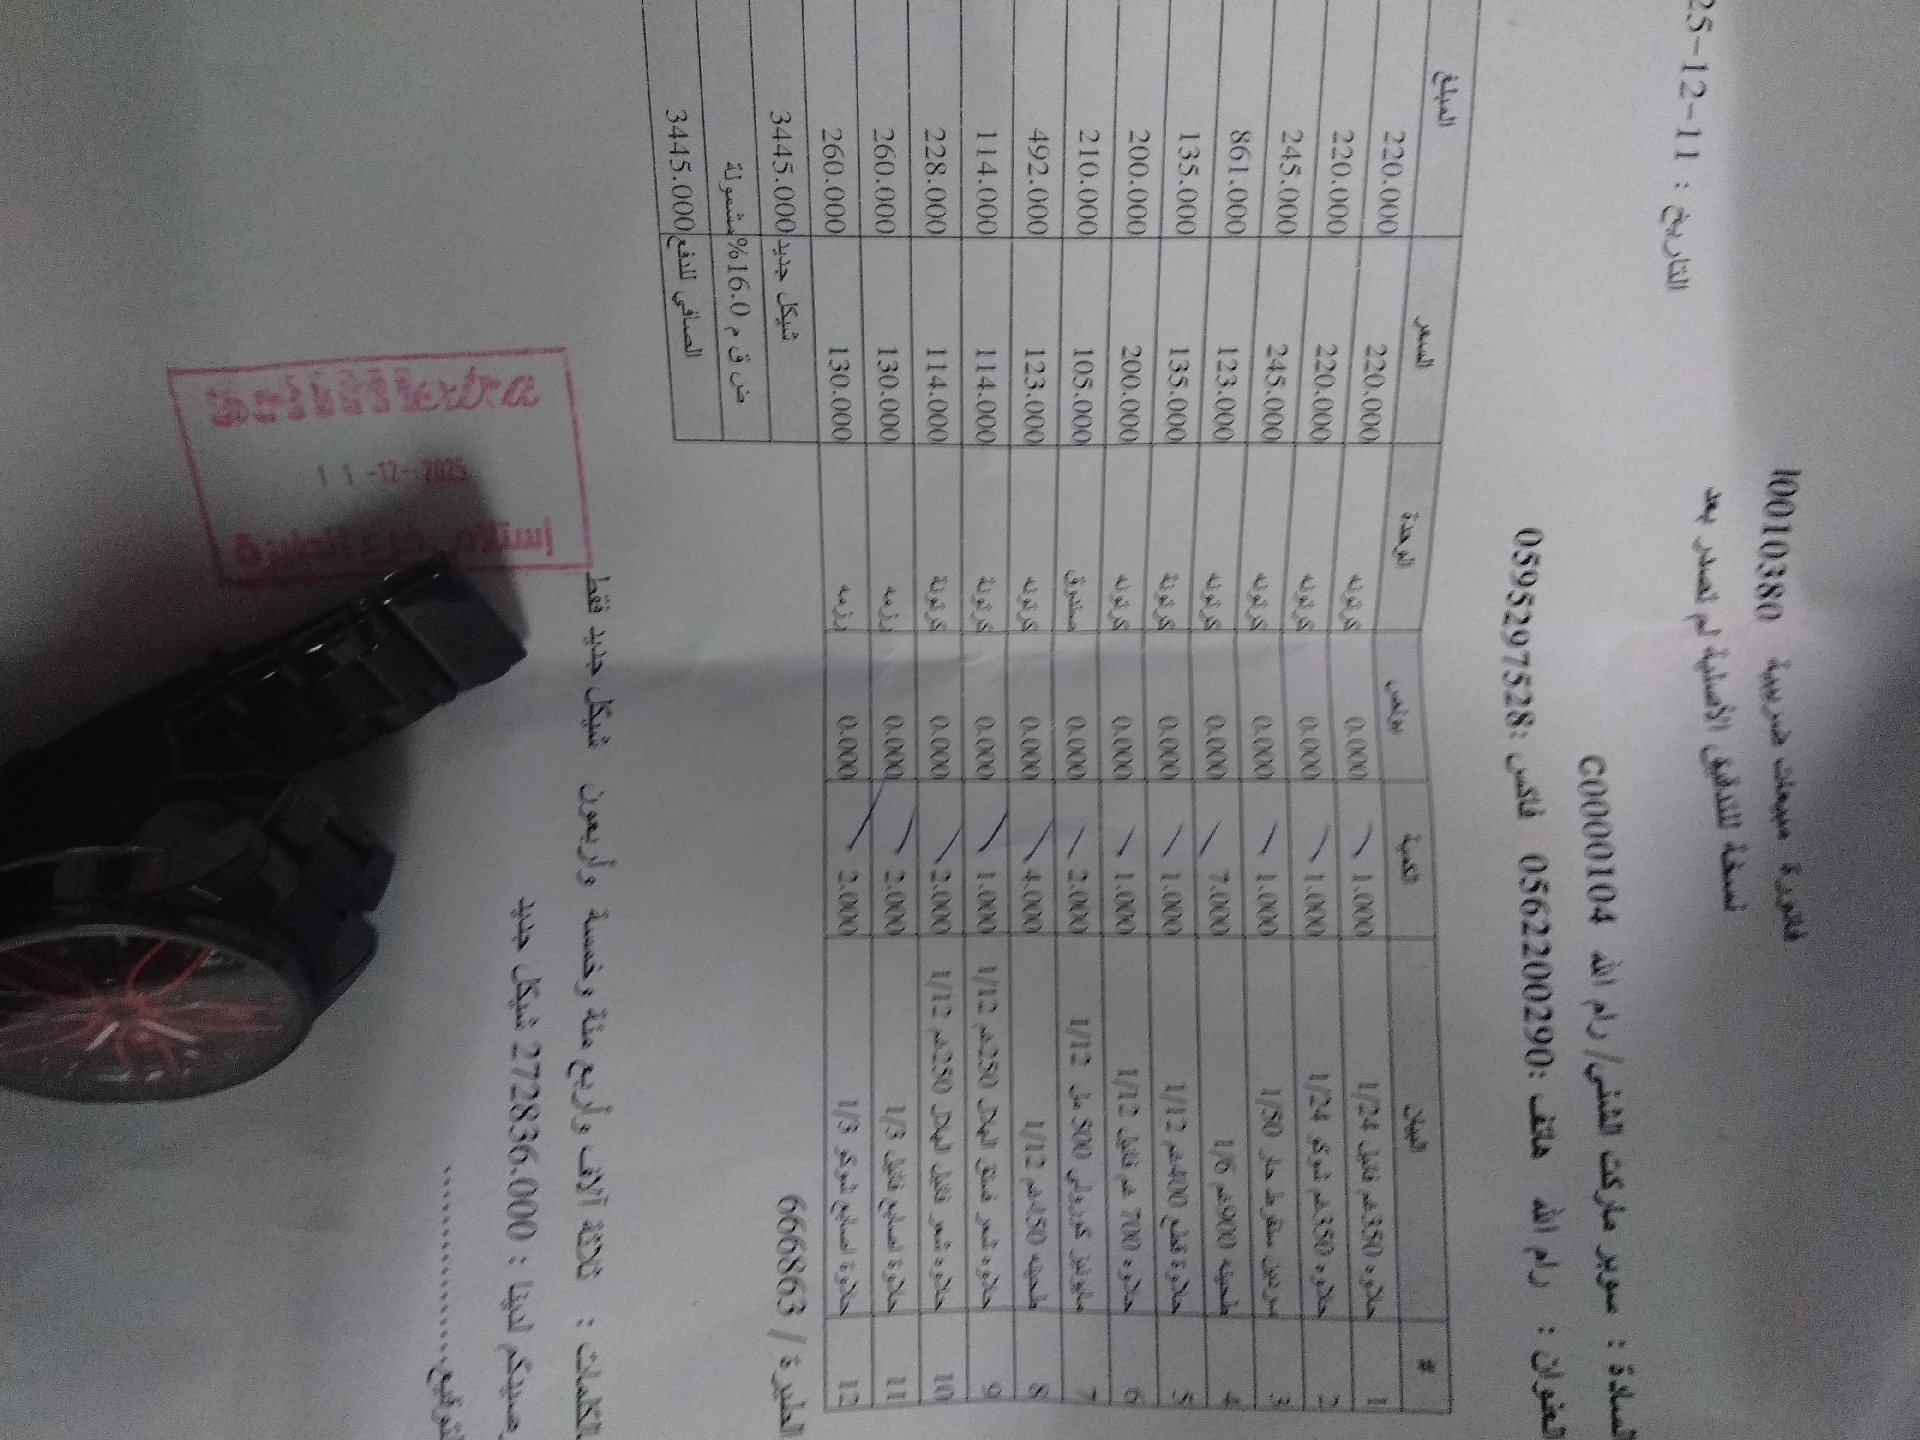 فاتورة مبيعات ضريبية I0010380
نسخة للتدقيق الأصلية لم تصدر بعد
25-12-11 : التاريخ
السادة : سوبر ماركت الشني/ رام الله C000104
العنوان : رام الله هاتف :0562200290 فاكس :0595297528
# البيان الكمية بونص الوحدة السعر المبلغ
1 حلاوه 350غم فانيل 1/24 1.000 0.000 كرتونه 220.000 220.000
2 حلاوه 350غم شوكو 1/24 1.000 0.000 كرتونه 220.000 220.000
3 سردين سقرط حار 1/50 1.000 0.000 كرتونه 245.000 245.000
4 طحينه 900غم 1/6 7.000 0.000 كرتونه 123.000 861.000
5 حلاوة قطع 400غم 1/12 1.000 0.000 كرتونة 135.000 135.000
6 حلاوه 700 غم فانيل 1/12 1.000 0.000 كرتونه 200.000 200.000
7 مايونيز كورولي 500 مل 1/12 2.000 0.000 صندوق 105.000 210.000
8 طحينه 450غم 1/12 4.000 0.000 كرتونه 123.000 492.000
9 حلاوه شعر فستق الهلال 250غم 1/12 1.000 0.000 كرتونة 114.000 114.000
10 حلاوه شعر فانيل الهلال 250غم 1/12 2.000 0.000 كرتونة 114.000 228.000
11 حلاوة اصابع فانيل 1/3 2.000 0.000 رزمه 130.000 260.000
12 حلاوة اصابع شوكو 1/3 2.000 0.000 رزمه 130.000 260.000
شيكل جديد 3445.000
ض ق م 16.0% مشمولة
الصافي للدفع 3445.000
الطيرة / 666863
بالكلمات : ثلاثة آلاف وأربع مئة وخمسة وأربعون شيكل جديد فقط
رصيدكم لدينا : 272836.000 شيكل جديد
التوقيع..............
11-12-2025
إستلام فرع الطيرة